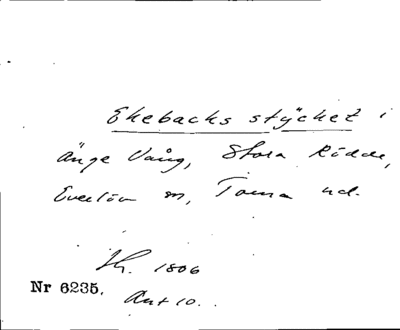 Ekebacks stycket i
Änge Vång, Stora Rödde,
Everlöv sn, Torna hd.
Sk. 1806
Nr 6235. Akt 10.